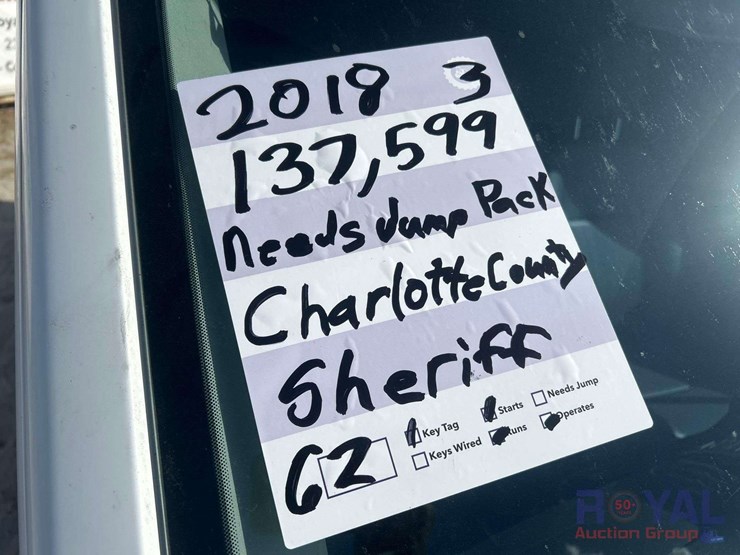 2018 3
137,599
Needs Jump Pack
Charlotte County
Sheriff
62
Key Tag
Starts
Needs Jump
Keys Wired
Runs
Operates
ROYAL
Auction Group